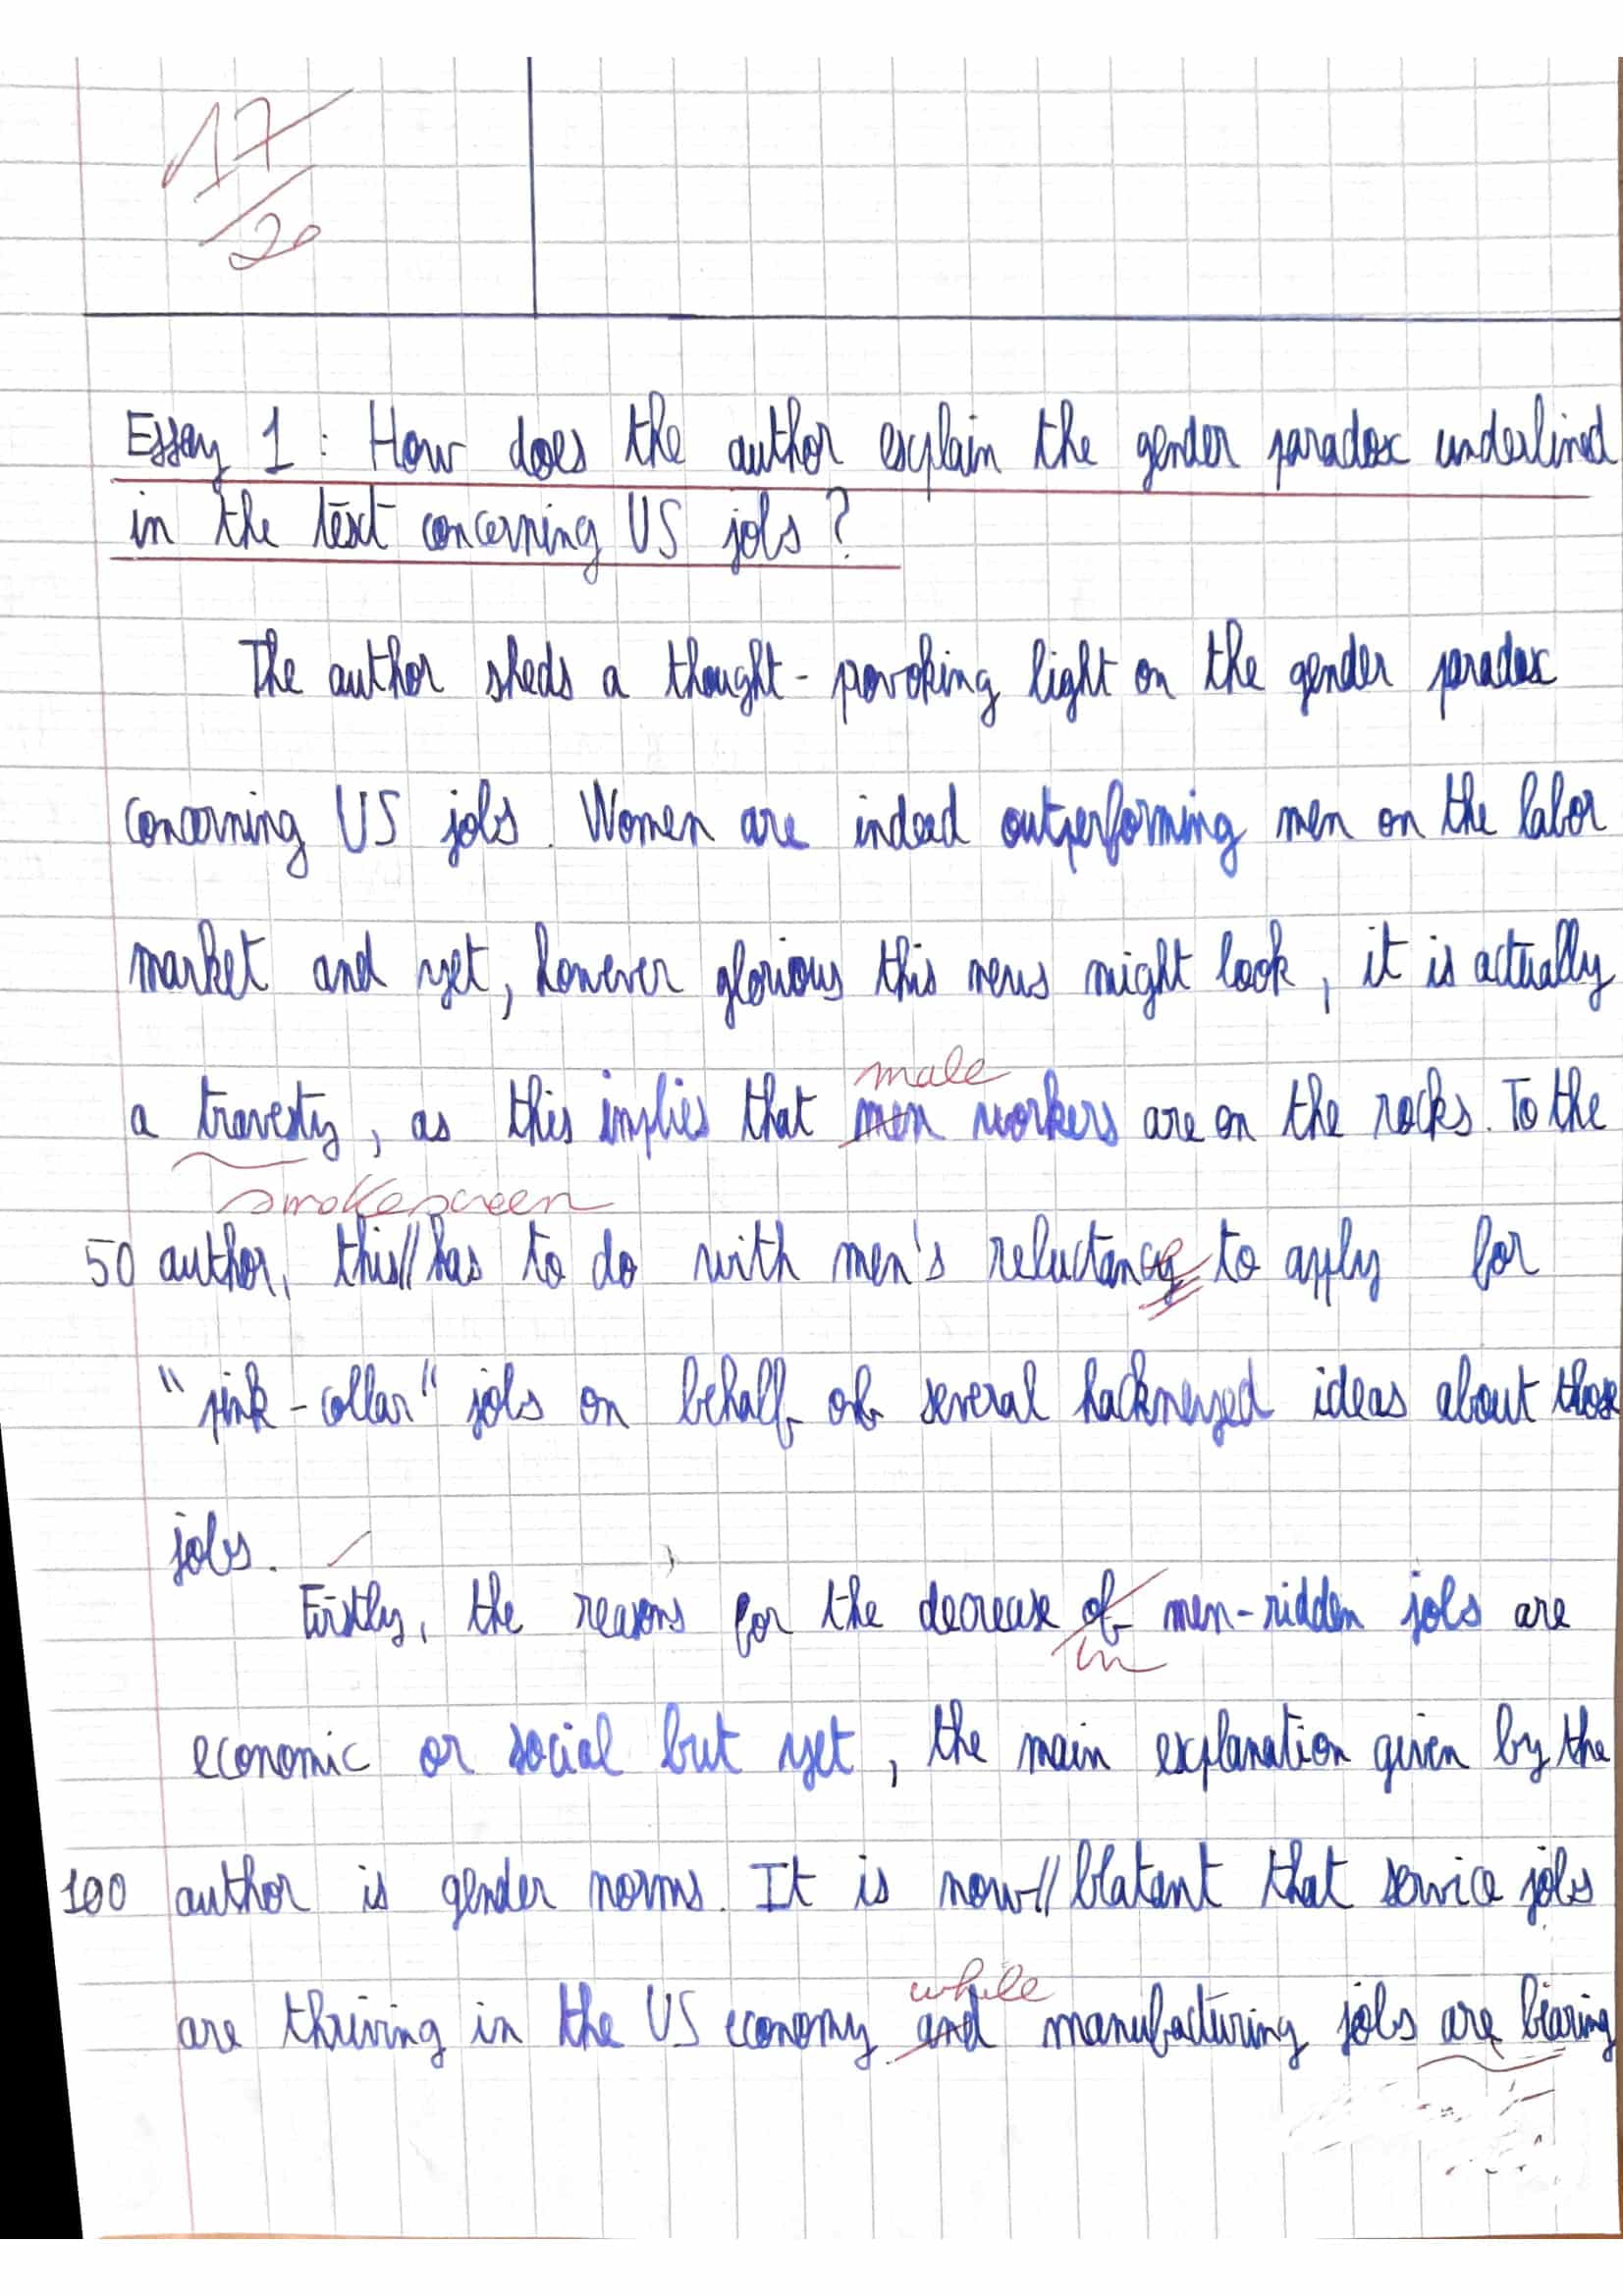 17
/20
Essay 1 : How does the author explain the gender paradox underlined
in the text concerning US jobs ?
The author sheds a thought-provoking light on the gender paradox
concerning US jobs. Women are indeed outperforming men on the labor
market and yet, however glorious this news might look, it is actually
male
a travesty, as this implies that men workers are on the rocks. To the
smokescreen
50 author, this// has to do with men's reluctancy to apply for
"pink-collar" jobs on behalf of several hackneyed ideas about those
jobs.
Firstly, the reasons for the decrease of men-ridden jobs are
in
economic or social but yet, the main explanation given by the
100 author is gender norms. It is now// blatant that service jobs
while
are thriving in the US economy and manufacturing jobs are bearing